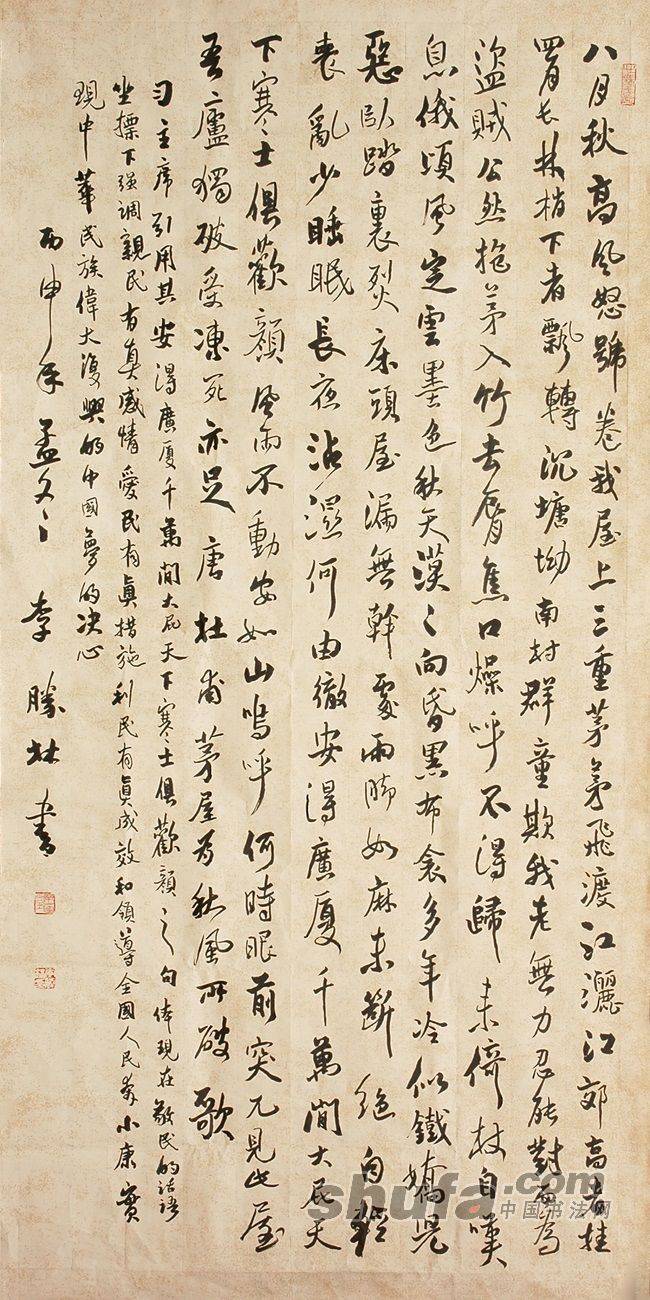 八月秋高风怒號卷我屋上三重茅茅飛渡江灑江郊高者挂
罥長林梢下者飄轉沉塘坳南村群童欺我老無力忍能對面為
盜賊公然抱茅入竹去脣焦口燥呼不得歸来倚杖自嘆
息俄頃風定雲墨色秋天漠〻向昏黑布衾多年冷似鐵嬌兒
惡臥踏裏裂床頭屋漏無幹處雨腳如麻未斷絕自經
喪亂少睡眠長夜沾濕何由徹安得廣廈千萬間大庇天
下寒士俱歡顏風雨不動安如山嗚呼何時眼前突兀見此屋
吾廬獨破受凍死亦足 唐杜甫茅屋為秋風所破歌
习主席引用其安得廣廈千萬間大庇天下寒士俱歡顏之句体現在敬民的話語
坐標下强調親民有真感情愛民有真措施利民有真成效和領導全國人民奔小康實
現中華民族偉大復興的中國夢的决心
丙申年孟冬 李勝林書
shufa.com
中国书法网